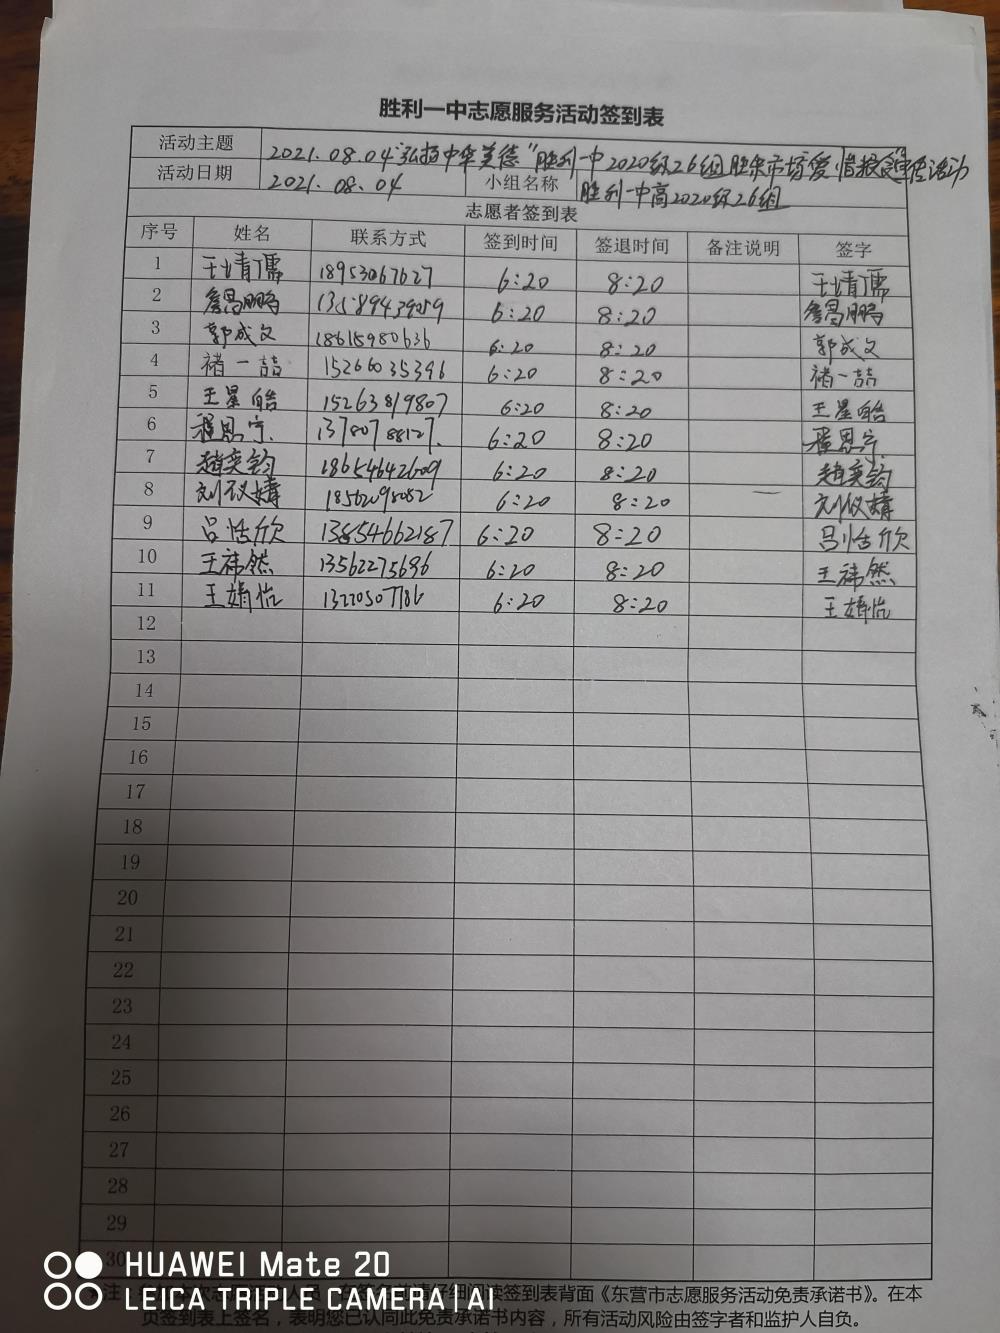 胜利一中志愿服务活动签到表
活动主题 2021.08.04"弘扬中华美德"胜利一中2020级26组胜采市场爱心 活动
活动日期 2021.08.04 小组名称 胜利一中高2020级26组
志愿者签到表
序号 姓名 联系方式 签到时间 签退时间 备注说明 签字
1 王靖儒 18953067627 6:20 8:20 王靖儒
2 詹昌鹏 13589439059 6:20 8:20 詹昌鹏
3 郭成文 18615980636 6:20 8:20 郭成文
4 褚一喆 15266035396 6:20 8:20 褚一喆
5 王星皓 15263819807 6:20 8:20 王星皓
6 程思宁 13780788127 6:20 8:20 程思宁
7 赵奕钧 18654642609 6:20 8:20 赵奕钧
8 刘议婧 18562098082 6:20 8:20 刘议婧
9 吕恬欣 13854662187 6:20 8:20 吕恬欣
10 王祎然 13562275696 6:20 8:20 王祎然
11 王婧怡 13220507186 6:20 8:20 王婧怡
12
13
14
15
16
17
18
19
20
21
22
23
24
25
26
27
28
29
30
HUAWEI Mate 20
LEICA TRIPLE CAMERA | AI
注: 请仔细阅读签到表背面《东营市志愿服务活动免责承诺书》。在本
页签到表上签名，表明您已认同此免责承诺书内容，所有活动风险由签字者和监护人自负。